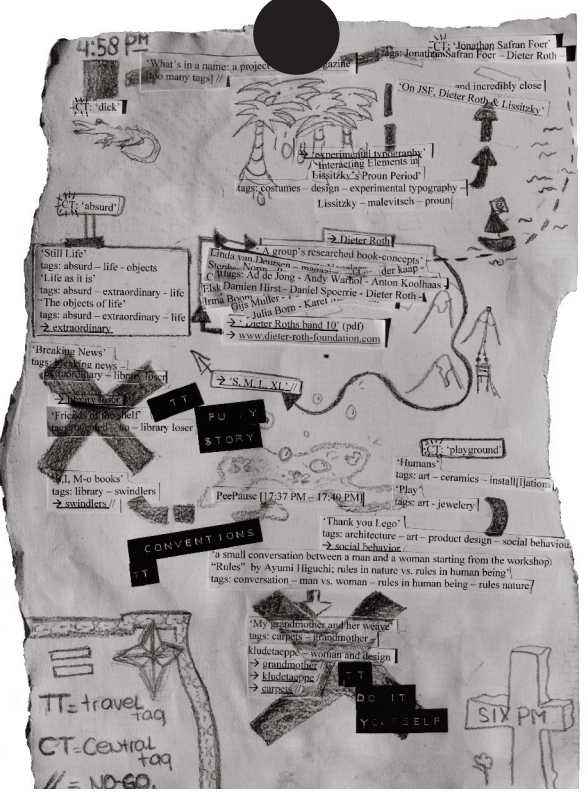 4:58 PM
'What's in a name: a project
gazine'
too many tags] //
CT: 'Jonathan Safran Foer'
tags: Jonathan Safran Foer – Dieter Roth –
and incredibly close
'On JSF, Dieter Roth & Lissitzky'
CT: 'dick'
→ 'experimental typography'
'Interacting Elements in
Lissitzky's Proun Period'
tags: costumes – design – experimental typography –
Lissitzky – malevitsch – proun
CT: 'absurd'
'Still Life'
tags: absurd – life - objects
'Life as it is'
tags: absurd – extraordinary - life
'The objects of life'
tags: absurd – extraordinary - life
→ extraordinary
→ Dieter Roth
A group's researched book-concepts'
Linda van Deursen –
der kaap
tags: Ad de Jong - Andy Warhol - Anton Koolhaas
Elsk Damien Hirst - Daniel Spoerrie - Dieter Roth -
Irma Boom
Gijs Muller -
- Julia Born - Karel
→ 'Dieter Roths band 10' (pdf)
→ www.dieter-roth-foundation.com
'Breaking News'
tags: breaking news –
extraordinary – library loser
→ library loser
'Friends of the shelf'
– library loser
→ 'S, M, L, XL' //
TT
STORY
'S,I, M-o books'
tags: library – swindlers
→ swindlers //
PeePause [17:37 PM – 17:40 PM]
CT: 'playground'
'Humans'
tags: art – ceramics – install[l]ations
'Play'
tags: art - jewelery
'Thank you Lego'
tags: architecture – art – product design – social behaviou
→ social behavior
CONVENTIONS
TT
'a small conversation between a man and a woman starting from the workshop
"Rules" by Ayumi Higuchi; rules in nature vs. rules in human being'
tags: conversation – man vs. woman – rules in human being – rules nature
'My grandmother and her weave'
tags: carpets – grandmother –
kludetaeppe – woman and design
→ grandmother
→ kludetaeppe
→ carpets //
TT
DO IT
YOURSELF
TT = travel
tag
CT = Central
tag
// = NO-GO.
SIX PM